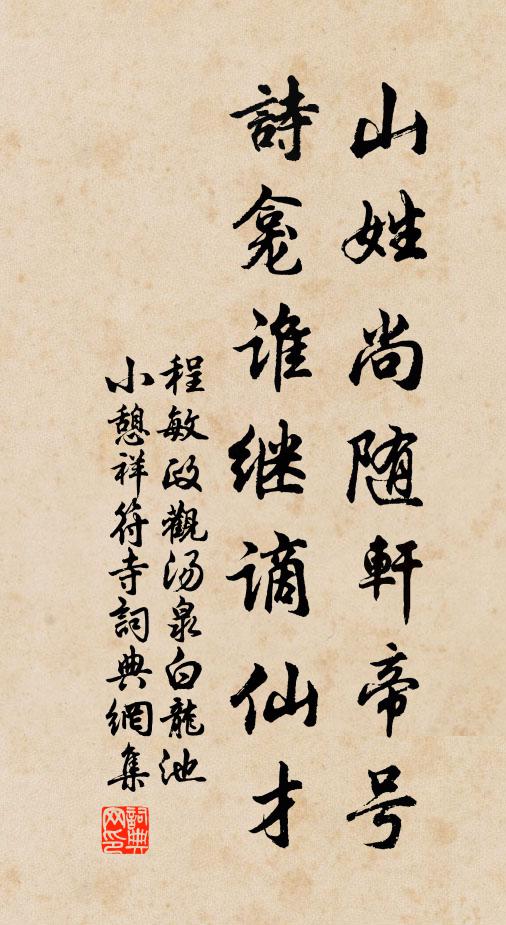 山姓尚随軒帝号
詩龛谁继谪仙才
程敏政觀汤泉白龍池
小憩祥符寺詞典網集
詞典网印